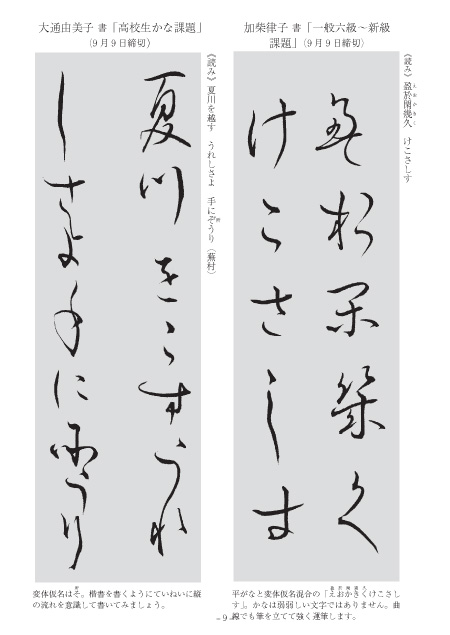 加柴律子 書「一般六級〜新級
課題」（9月9日締切）
《読み》盈於閑幾久　けこさしす
えおかきく
盈於閑幾久
けこさしす
平がなと変体仮名混合の「えおかきくけこさし
す」。かなは弱弱しい文字ではありません。曲
線でも筆を立てて強く運筆します。
大通由美子 書「高校生かな課題」
（9月9日締切）
《読み》夏川を越す　うれしさよ　手にぞうり（蕪村）
夏川をこすうれ
しさよ手に所うり
変体仮名はそ。楷書を書くようにていねいに縦
の流れを意識して書いてみましょう。